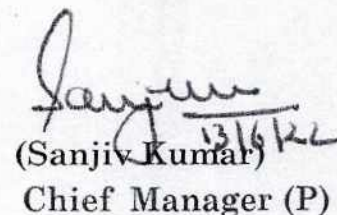 Sanjiv
13/6/22
(Sanjiv Kumar)
Chief Manager (P)